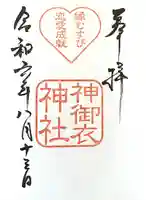 奉拝
縁むすび
恋愛成就
神御衣
神社
令和六年八月十三日